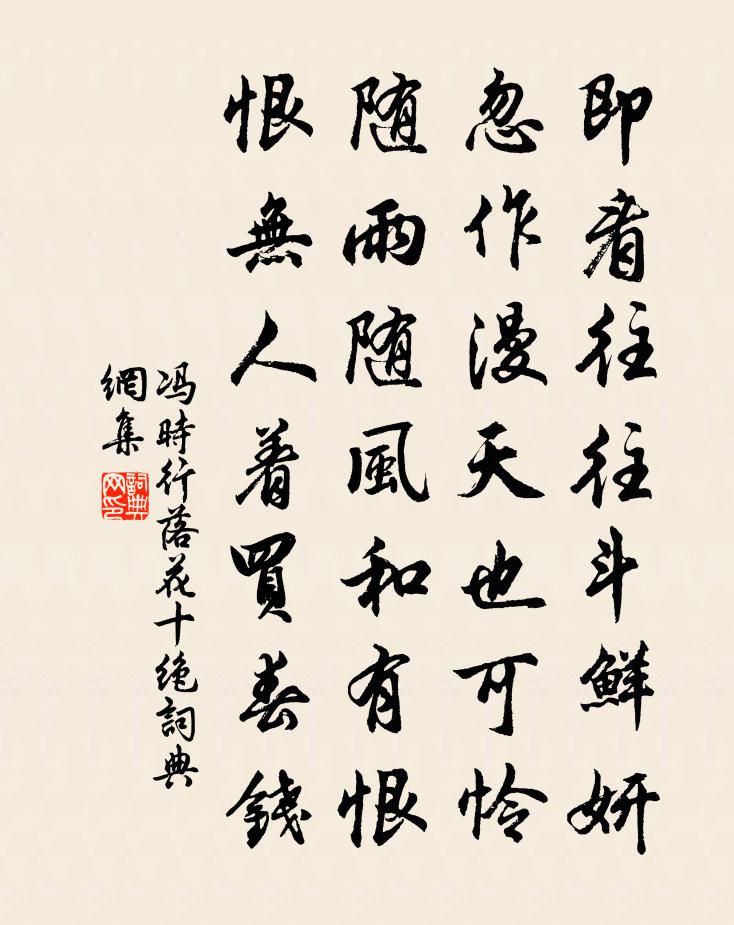 即看往往斗鮮妍
忽作漫天也可怜
随雨随風和有恨
恨無人着買春錢
冯時行落花十绝詞典
網集
詞典网印